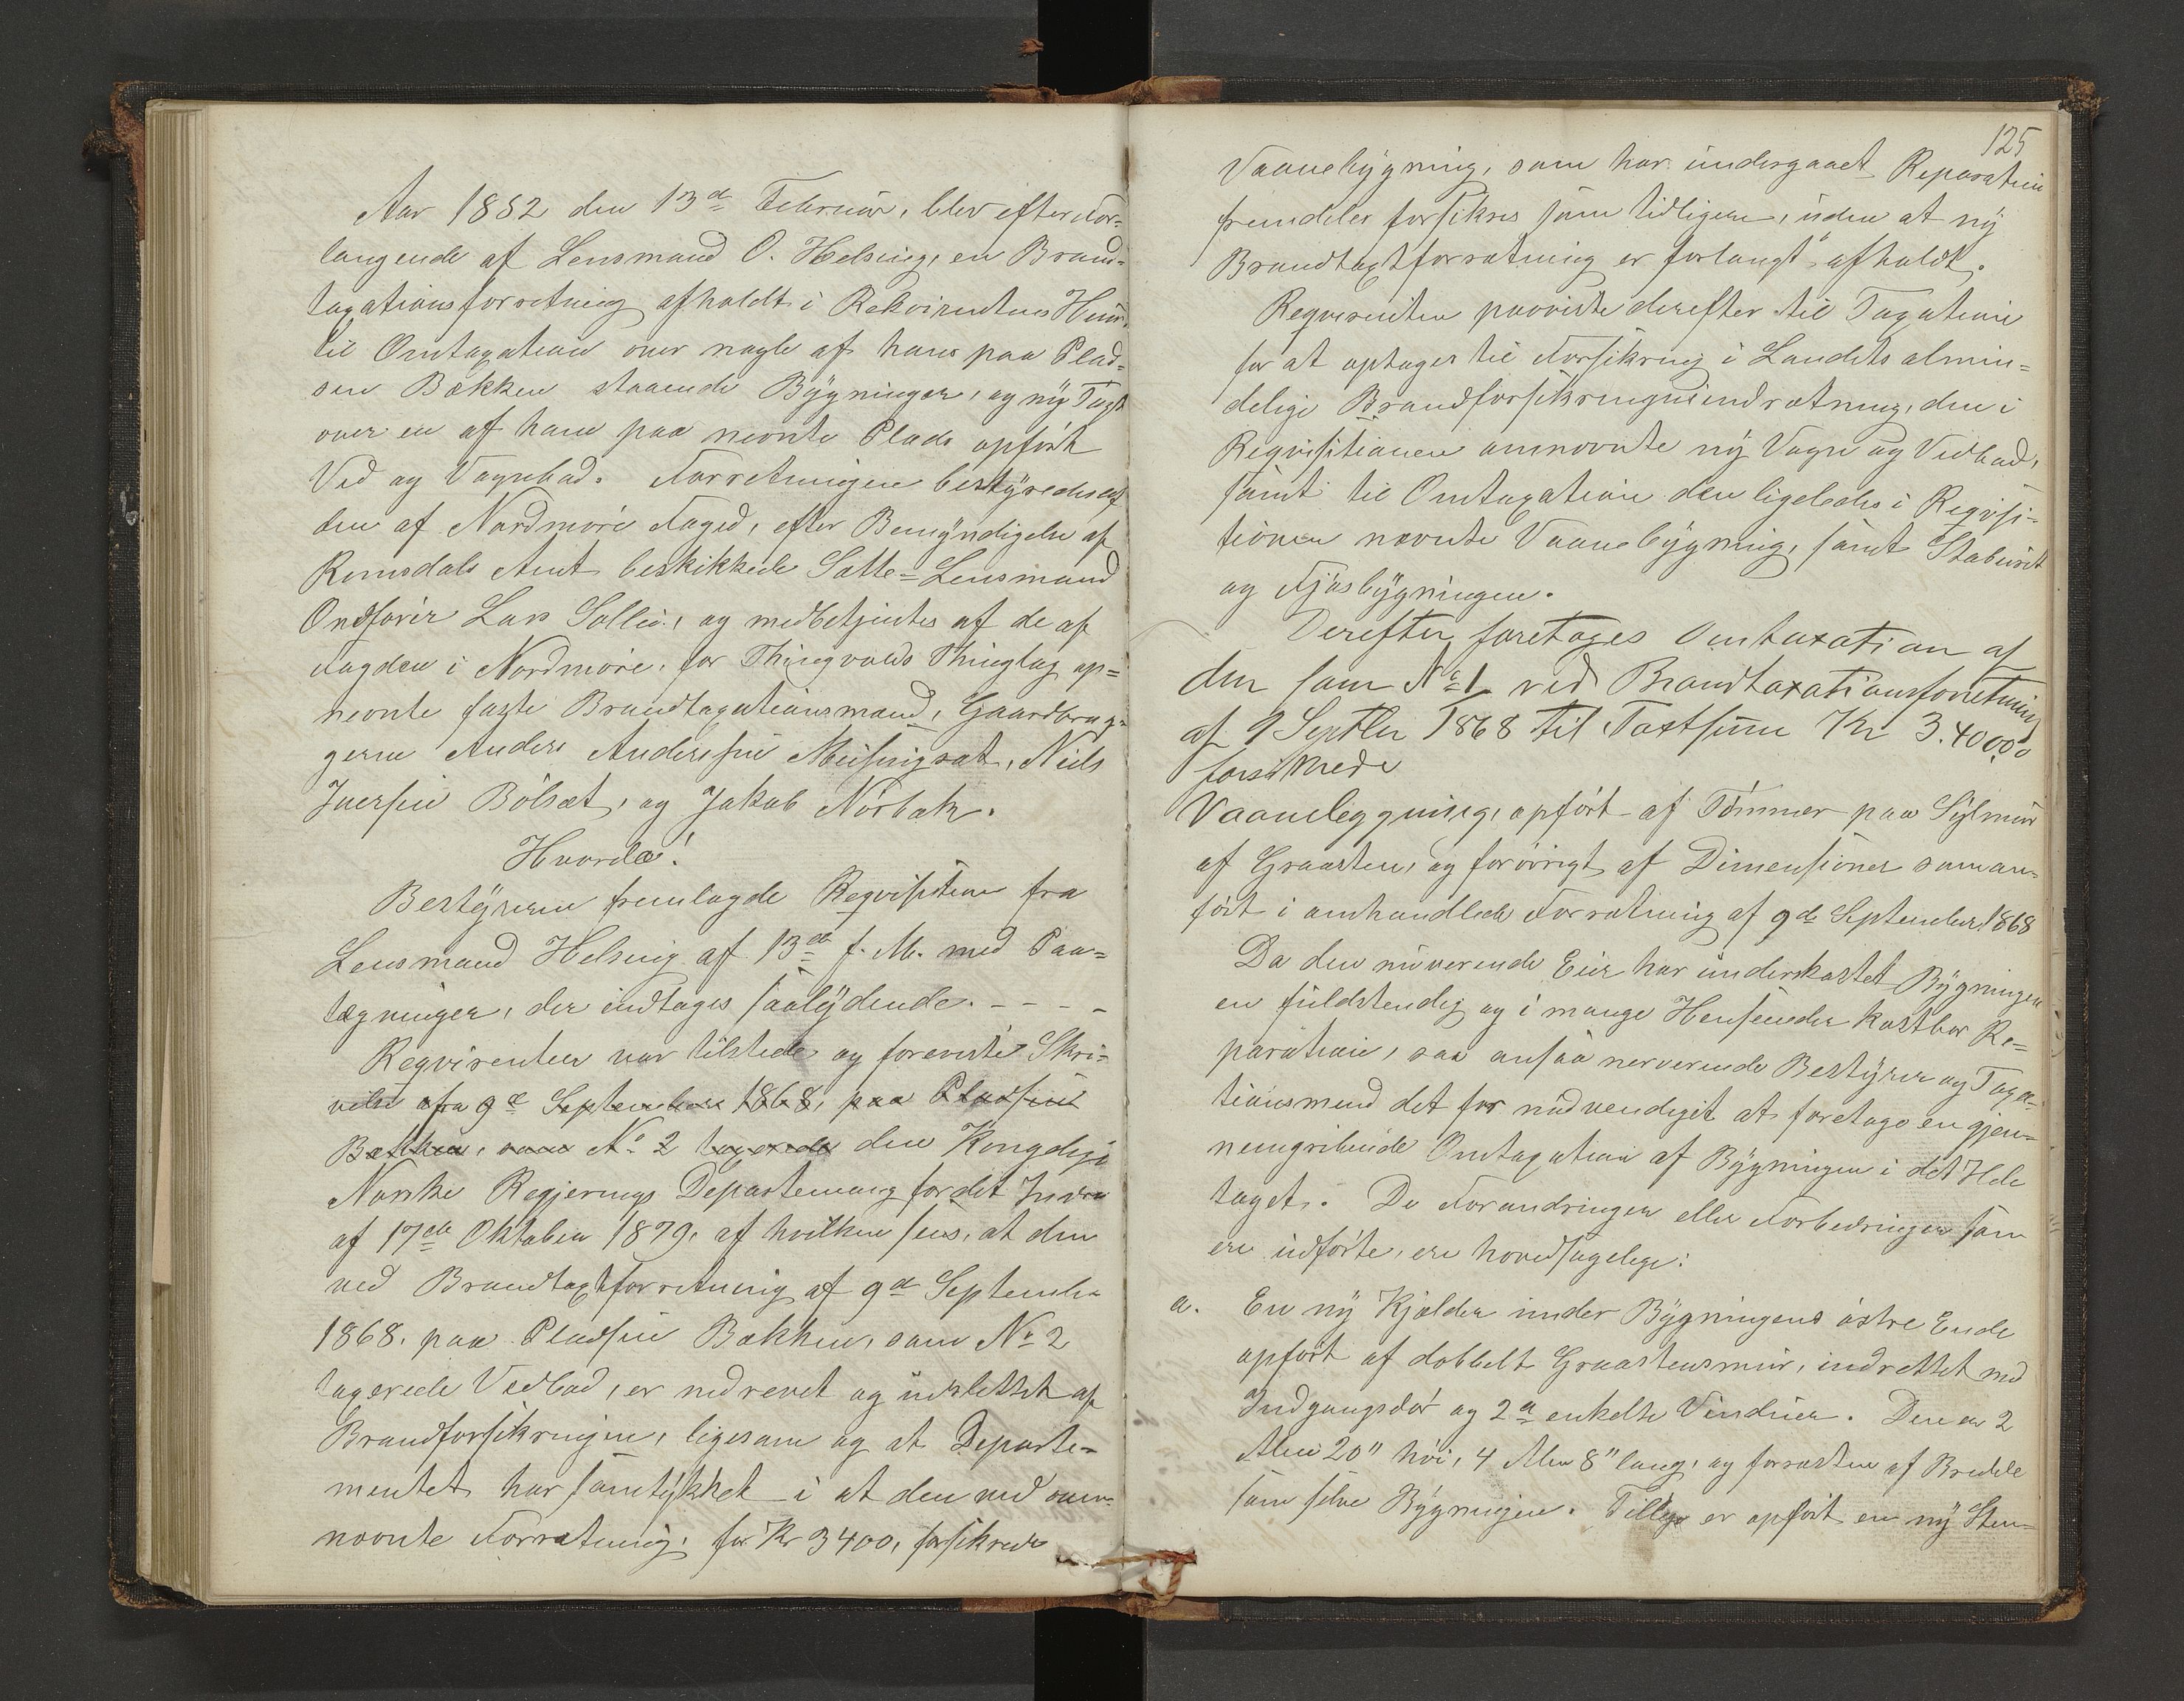 Aar 1882 den 13de Februar, blev efter For=
langende af Lensmand O. Helsing, en Brand=
taxationsforretning afholdt i Rekvirentens Huus
til Omtaxation over nogle af hans paa Plad=
sen Bakken staaende Bygninger, og ny Taxt
over en af ham paa nevnte Plads opført
Ved og Vognbod. Forretningen bestyredes af
den af Nordmøre Foged, efter Bemyndigelse af
Romsdals Amt beskikkede Sætte=Lensmand
Ordfører Lars Sollie, og medbetjentes af de af
Fogden i Nordmøre, for Thingvolds Thinglag op=
nevnte faste Brandtaxationsmænd, Gaardbru=
gerne Anders Andersen Meisingset, Niels
Iversen Bölset, og Jakob Nörbæk.
Hvorda!
Bestyreren fremlagde Reqvisition fra
Lensmand Helsing af 13de f. M. med Paa=
tegninger, der indtages saalydende. - - - -
Reqvirenten var tilstede og foreviste Skri=
velse afra 9de September 1868, paa Pladsen
Bakken, som No 2 taxerede den Kongelige
Norske Regjerings Departement for det Indre
af 17de Oktober 1879, af hvilken sees, at den
ved Brandtaxtforretning af 9de September
1868, paa Pladsen Bakken, som No 2
taxerede Vedbod, er nedrevet og udslettet af
Brandforsikringen, ligesom og at Departe=
mentet har samtykket i at den ved oven=
nevnte Forretning, for Kr 3400, forsikrede
125
Vaanebygning, som har undergaaet Reparation
fremdeles forsikres som tidligere, uden at ny
Brandtaxtforretning er forlangt afholdt.
Reqvirenten paaviste derefter til Taxation
for at optages til Forsikring i Landets almin=
delige Brandforsikringsindretning, den i
Reqvisitionen omnevnte ny Vogn og Vedbod,
samt til Omtaxation den ligeledes i Reqvisi=
tionen nevnte Vaanebygning, samt Staburet
og Fjøsbygningen.
Derefter foretages Omtaxation af
den som No 1 ved Brandtaxationsforretning
af 9 Septbr 1868 til Taxtsum Kr 3.400,00
forsikrede
Vaanebygning, opført af Tømmer paa Sylmur
af Graasten, og forøvrigt af Dimensioner som an=
ført i omhandlede Forretning af 9de September 1868
Da den nuverende Eier har underkastet Bygningen
en fuldstendig og i mange Henseender kostbar Re=
paration, saa ansaa nerverende Bestyrer og Taxa=
tionsmend det for nødvendigt at foretage en gjen=
nemgribende Omtaxation af Bygningen i det Hele
taget. De Forandringer eller Forbedringer som
ere udførte, ere hovedsagelige:
a. En ny Kjælder under Bygningens østre Ende
opført af dobbelt Graastensmur, indrettet med
Indgangsdør og 2de enkelte Vinduer. Den er 2
Alen 20" høi, 4 Alen 8" lang, og forresten af Bredde
som selve Bygningen. Tillige er opført en ny Sten=